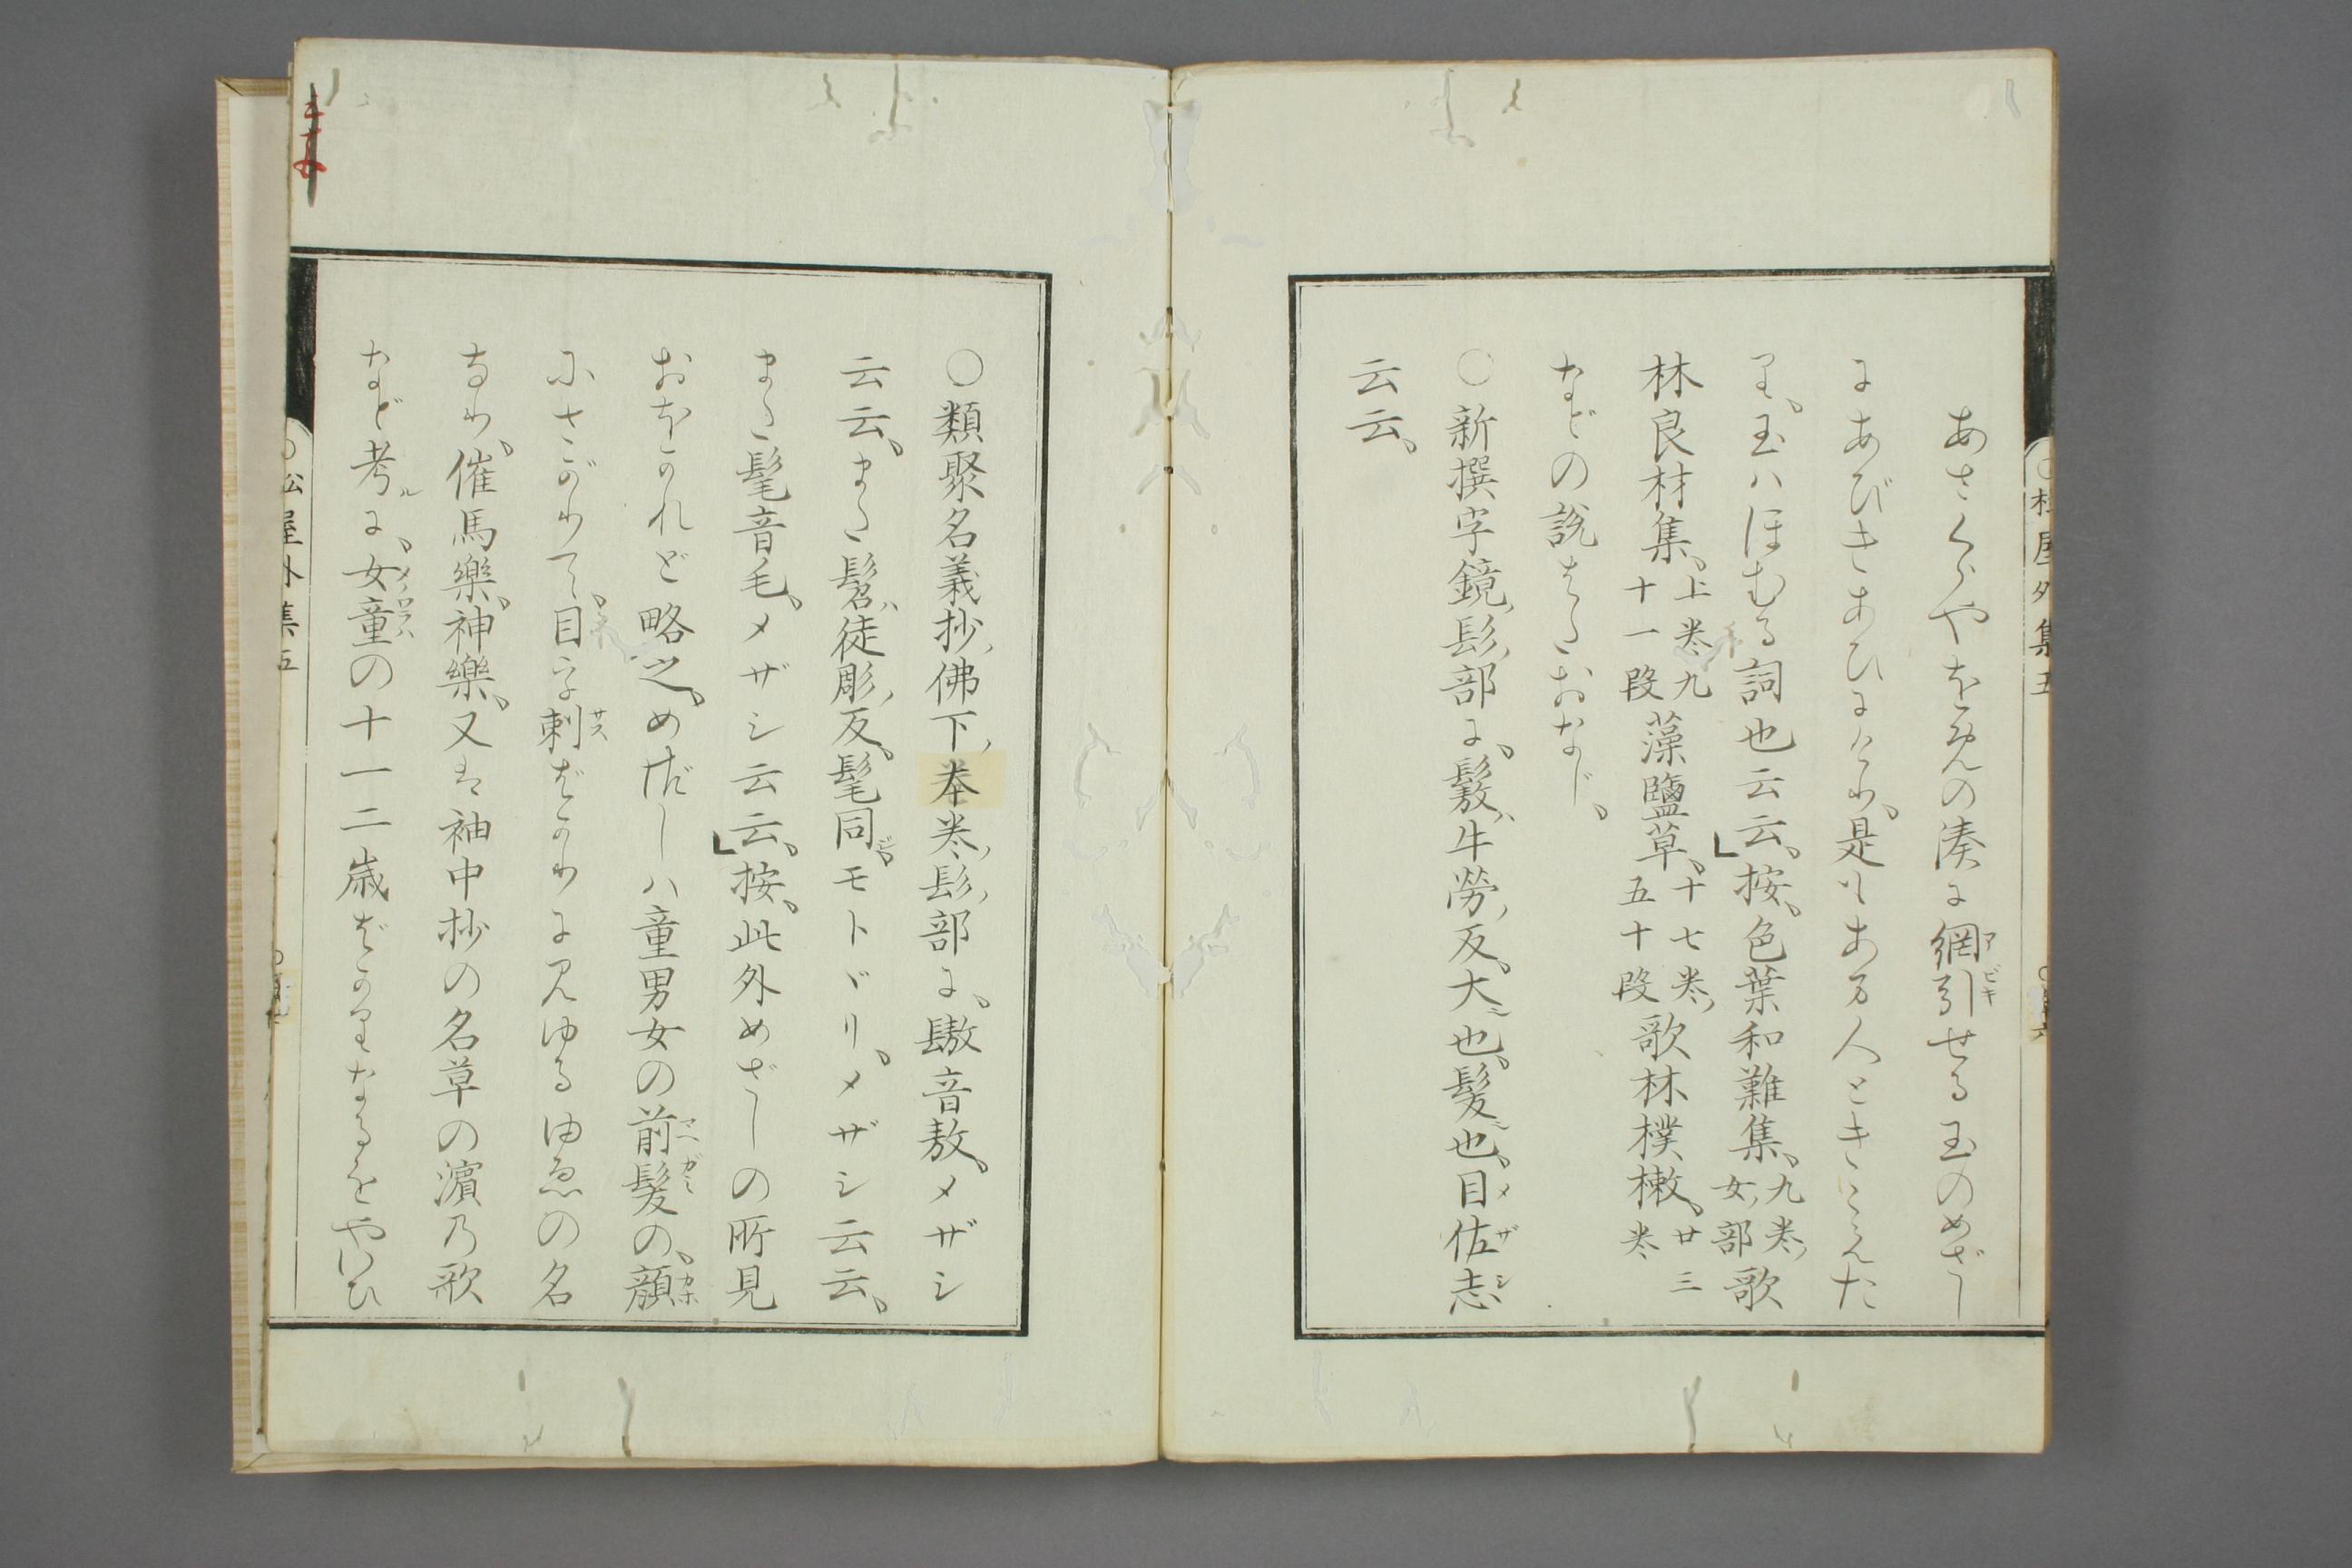 あさくらやをみの湊に網引せる玉のめざし
にあびきあひにけり、是もある人ときこえた
り、玉ハほむる詞也云云、」按、色葉和難集、九巻、女部歌
林良材集、上巻九十一段藻鹽草、十七巻、五十段歌林樸樕、廿三巻
などの説またおなじ、
○新撰字鏡、髟部に、䯫、牛勞反、大也、髪也、目佐志
云云、
○類聚名義抄、佛下、本巻、髟部に、䯫音敖、メザシ
云云、また髫、徒彫反、髦同、モトヾリ、メザシ云云、
また髦音毛、メザシ云云、」按、此外めざしの所見
おほかれど略之、めざしハ童男女の前髪の、顔
にさがりて、目を刺ばかりに見ゆるゆゑの名
なり、催馬樂、神樂、又は袖中抄の名草の濱乃歌
など考ルに、女童の十一二歳ばかりなるをやいひ
松屋外集五